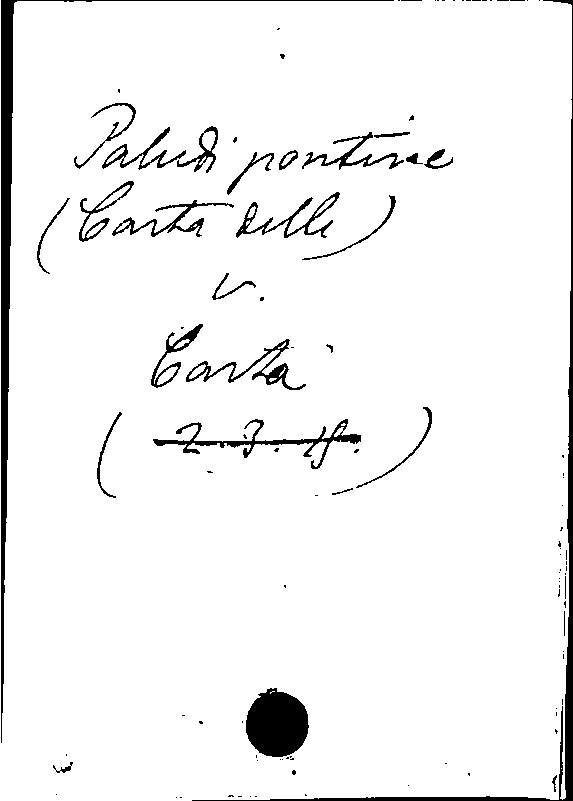 Paludi pontine
(Carta delle)
v.
Carta
( 2. 3. 15. )